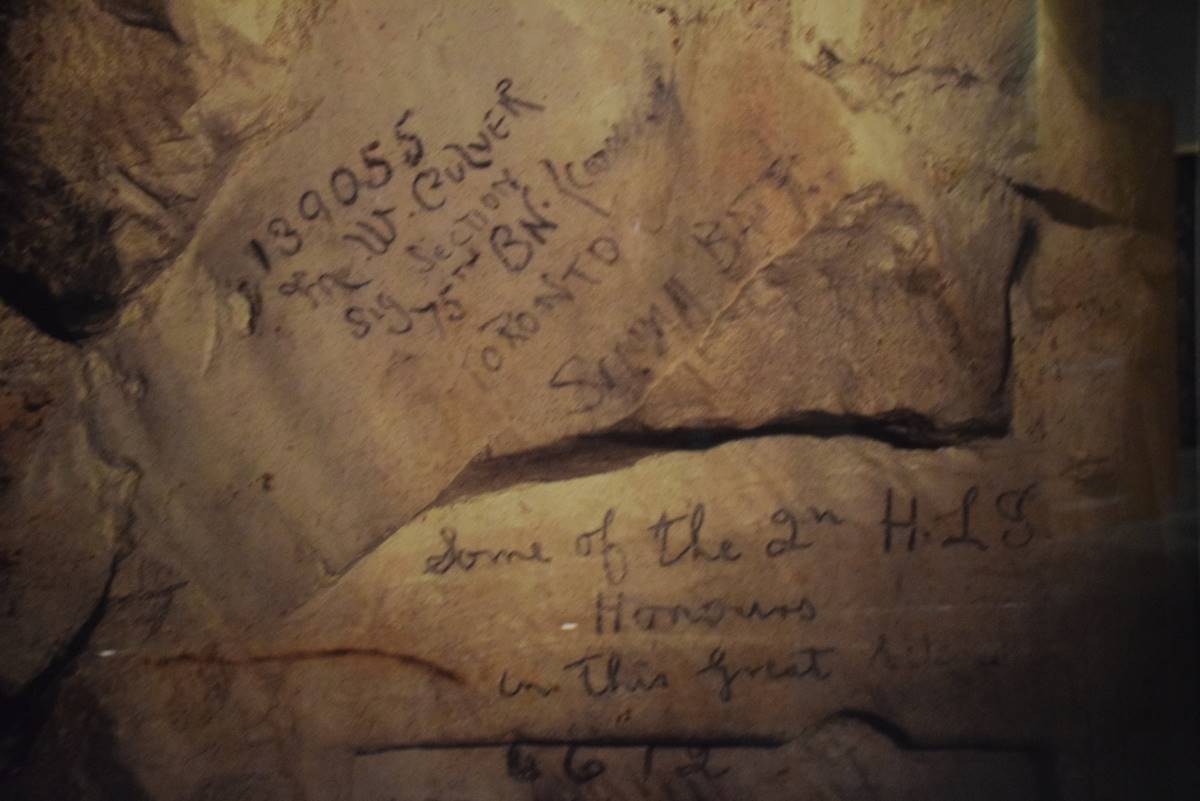 139055
Pte W. CULVER
Sig Section
75th BN.
TORONTO
Some of the 2n H.L.I.
Honours
in this great
6612